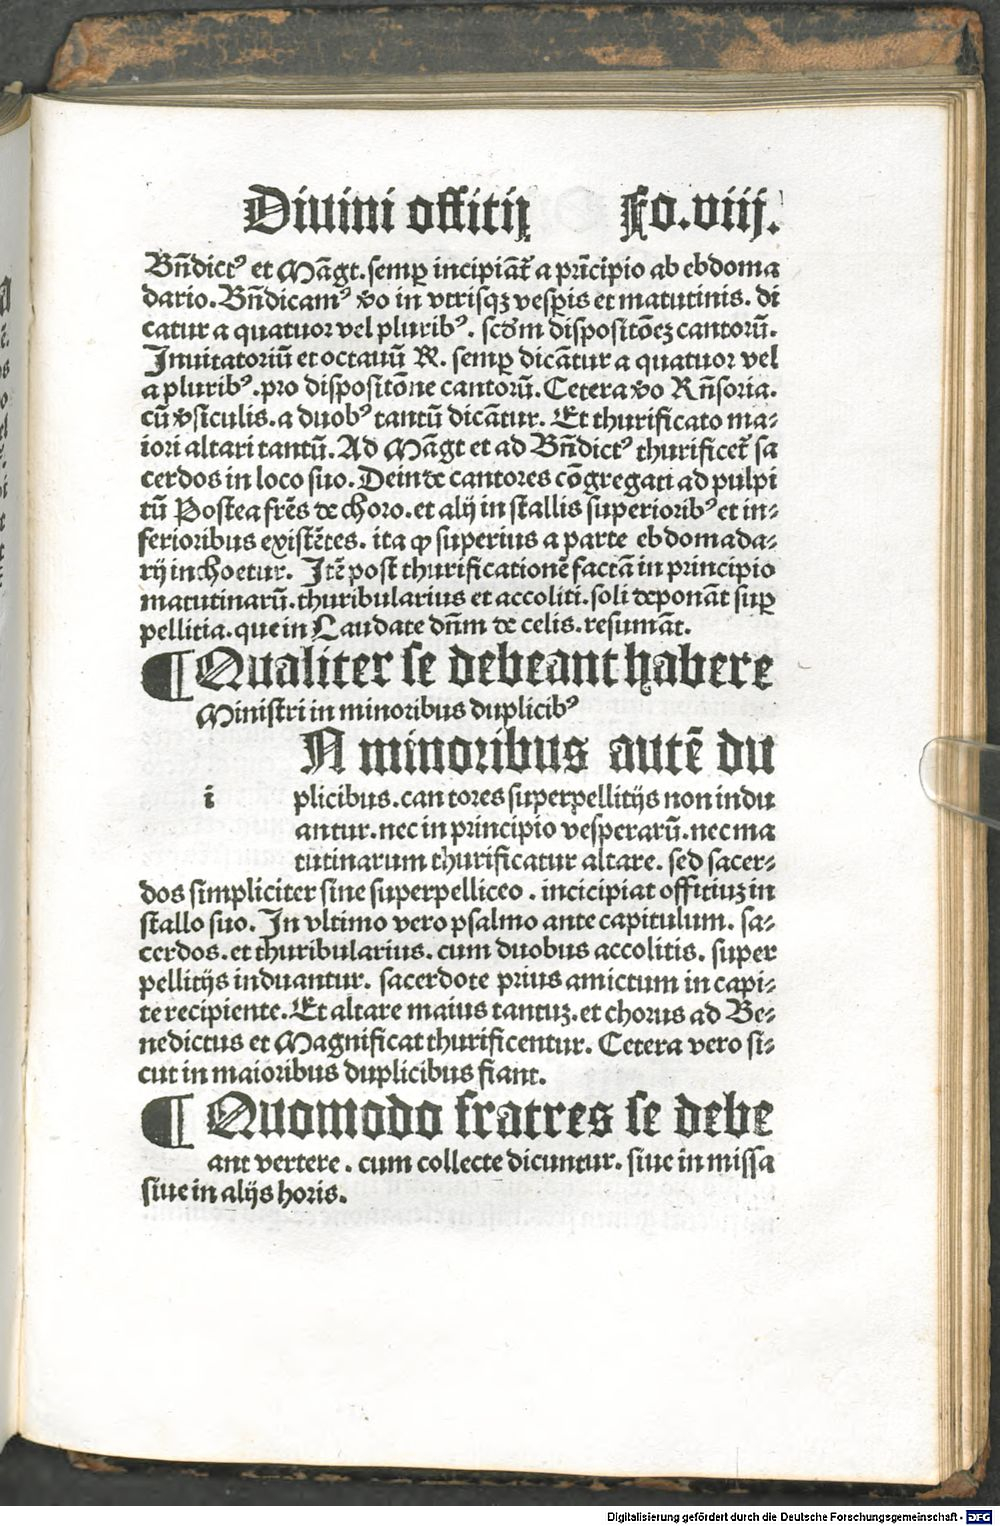 Diuini offitij Fo.viij.
Bn̄dictꝰ et Māgt. semꝑ incipiāt᷑ a prīcipio ab ebdoma
dario. Bn̄dicamꝰ ṽo in vtrisqꝫ vesꝑis et matutinis. di
catur a quatuor vel pluribꝰ. scd̄m dispositōeꝫ cantorū.
Inuitatoriū et octauū R. semꝑ dicātur a quatuor vel
a pluribꝰ. pro dispositōne cantorū. Cetera ṽo Rn̄soria.
cū ṽsiculis. a duobꝰ tantū dicātur. Et thurificato ma⸗
iori altari tantū. Ad Māgt et ad Bn̄dictꝰ thurificet᷑ sa
cerdos in loco suo. Deinde cantores cōgregati ad pulpi
tū Postea fr̄es de choro. et alij in stallis superioribꝰ et in⸗
ferioribus existētes. ita ꝙ superius a parte ebdomada⸗
rij inchoetur. Itē post thurificationē factā in principio
matutinarū. thuribularius et accoliti. soli deponāt suꝑ
pellitia. que in Laudate dn̄m de celis. resumāt.
¶ Qualiter se debeant habere
Ministri in minoribus duplicibꝰ
i N minoribus autē du
plicibus. cantores superpellitijs non indu
antur. nec in principio vesperarū. nec ma
tutinarum thurificatur altare. sed sacer⸗
dos simpliciter sine superpelliceo. incicipiat offitiuꝫ in
stallo suo. In vltimo vero psalmo ante capitulum. sa⸗
cerdos. et thuribularius. cum duobus accolitis. super
pellitijs induantur. sacerdote prius amictum in capi⸗
te recipiente. Et altare maius tantuꝫ. et chorus ad Be⸗
nedictus et Magnificat thurificentur. Cetera vero si⸗
cut in maioribus duplicibus fiant.
¶ Quomodo fratres se debe
ant vertere. cum collecte dicuntur. siue in missa
siue in alijs horis.
Digitalisierung gefördert durch die Deutsche Forschungsgemeinschaft - DFG